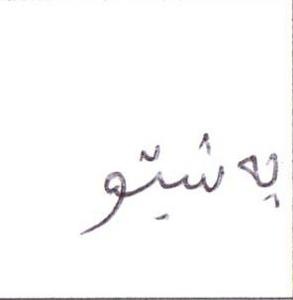 پەشێو